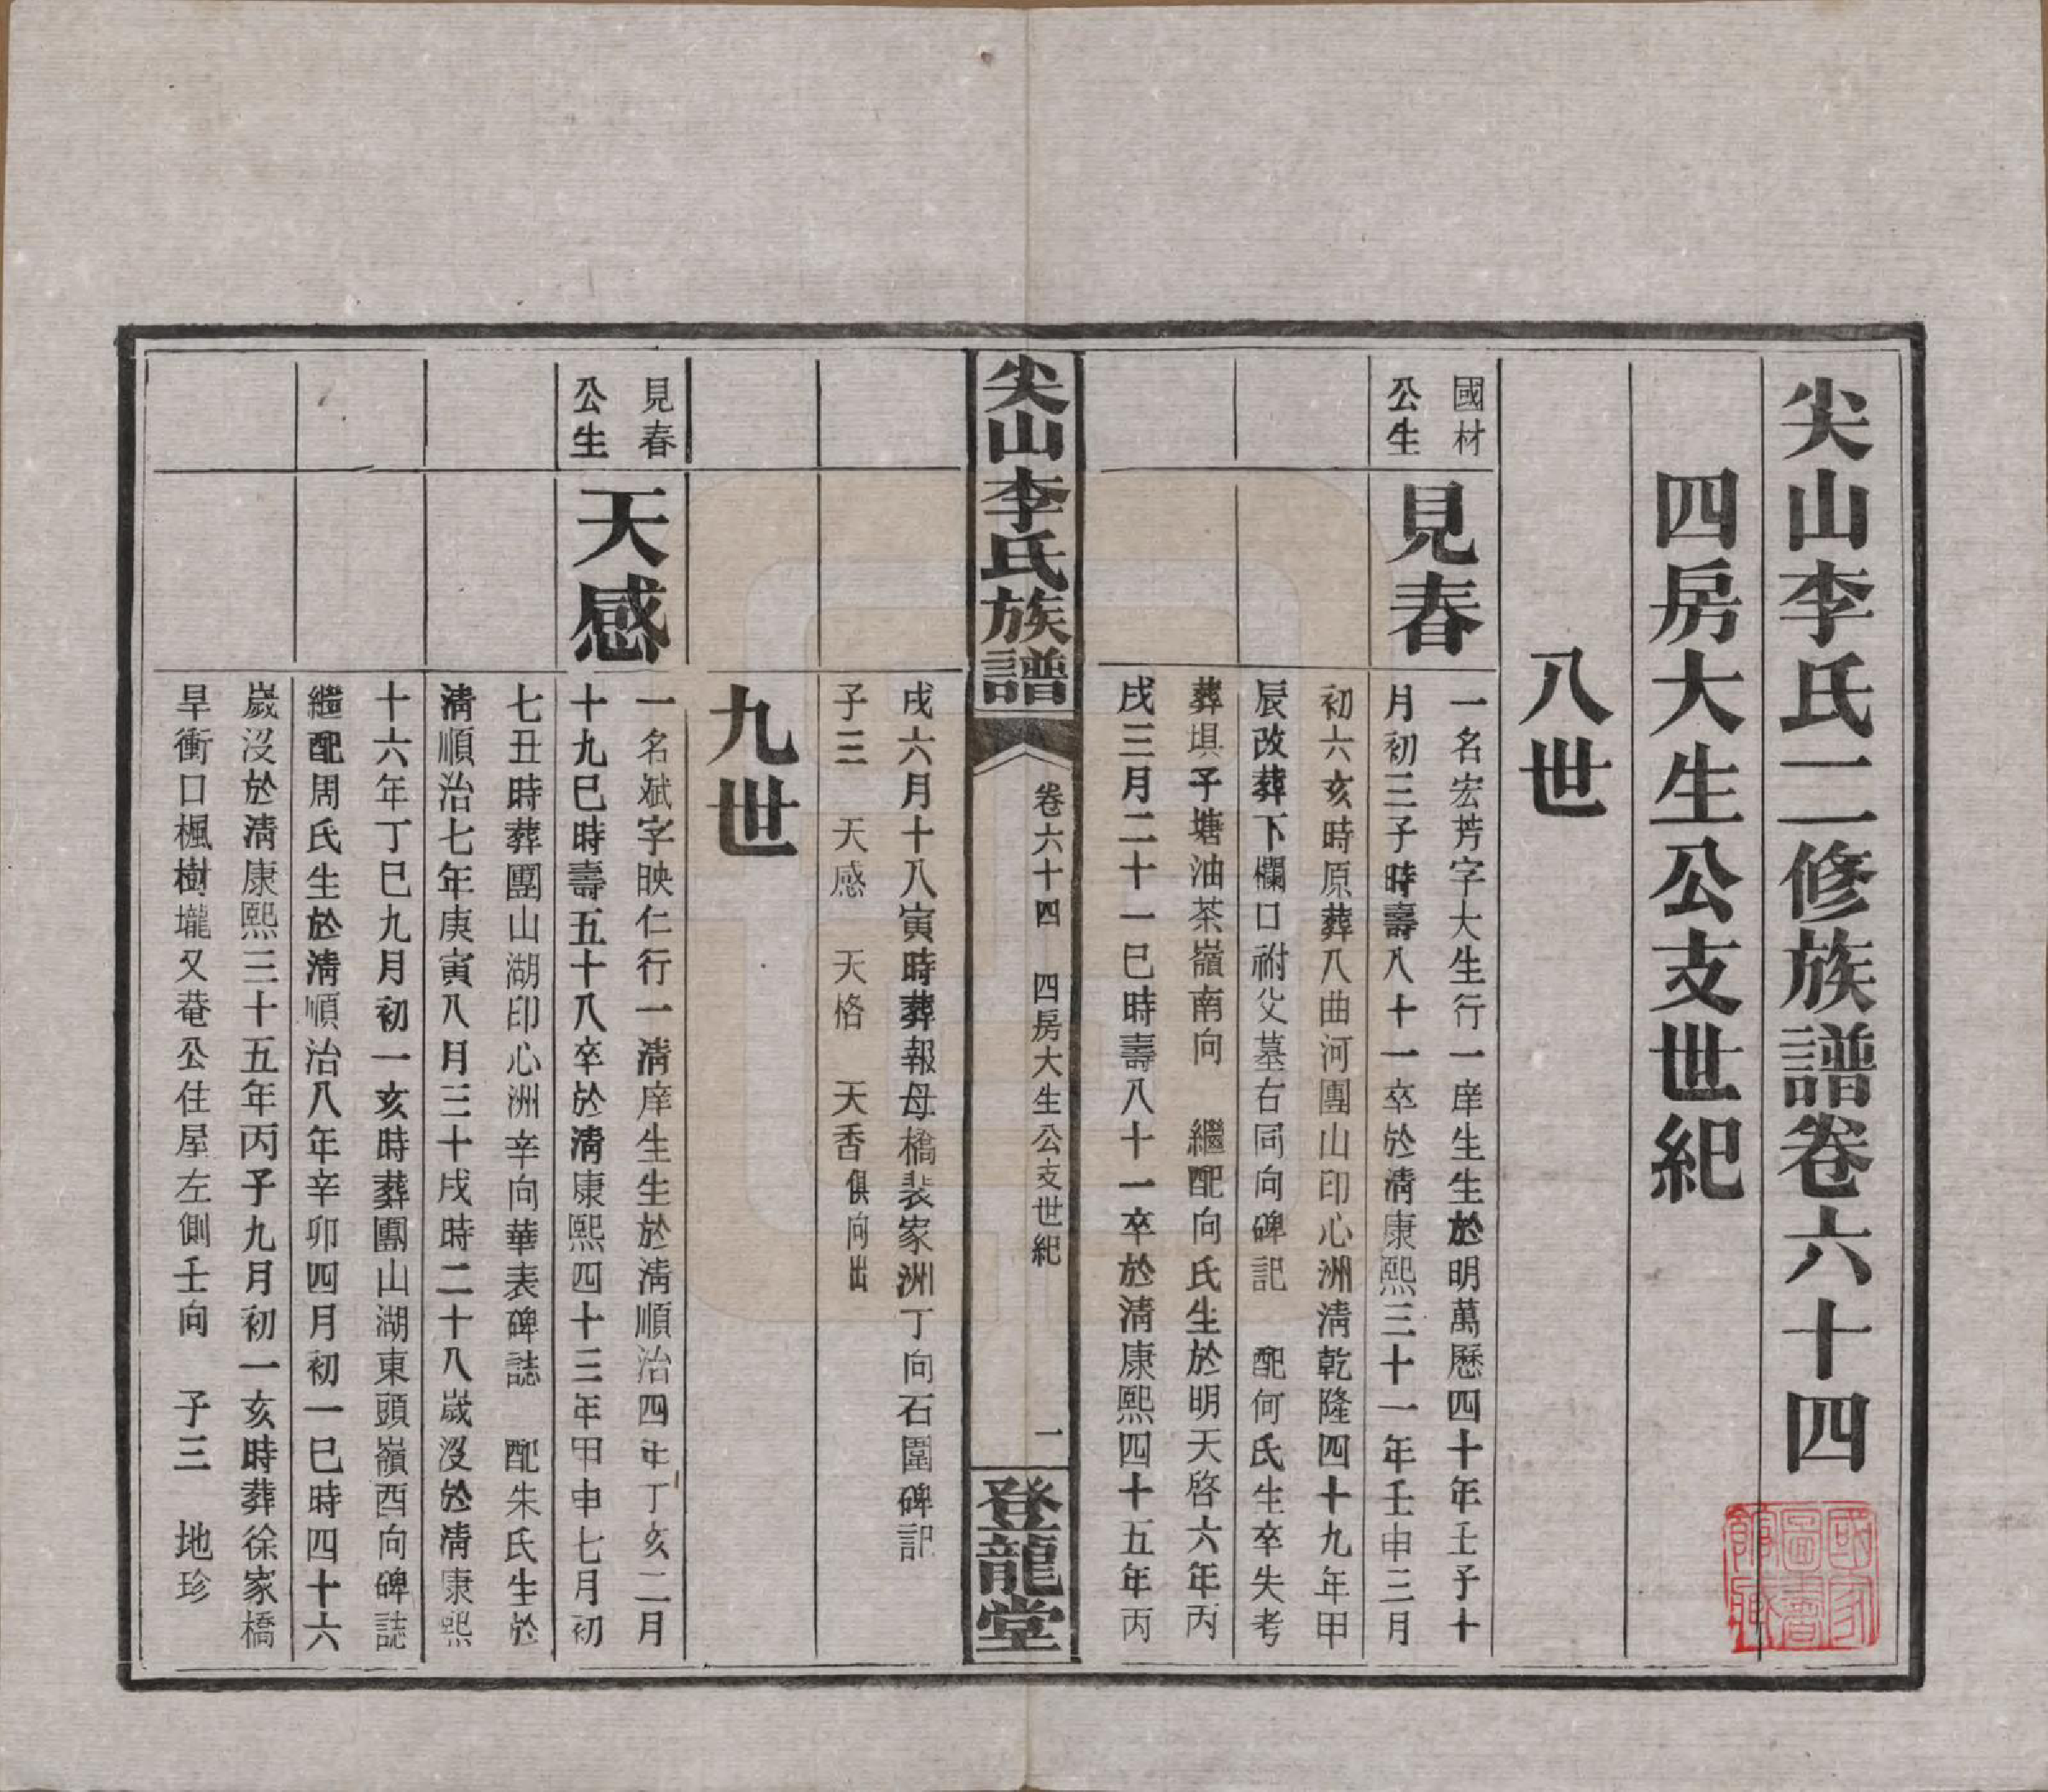 尖山李氏二修族譜卷六十四
四房大生公支世紀
八世
國材
公生
見春
一名宏芳字大生行一庠生生於明萬歷四十年壬子十
月初三子時壽八十一卒於清康熙三十一年壬申三月
初六亥時原葬八曲河團山印心洲清乾隆四十九年甲
辰改葬下欄口祔父墓右同向碑記 配何氏生卒失考
葬埧子塘油茶嶺南向 繼配向氏生於明天啓六年丙
戌三月二十一巳時壽八十一卒於清康熙四十五年丙
尖山李氏族譜
卷六十四 四房大生公支世紀
一
登龍堂
戌六月十八寅時葬報母橋裴家洲丁向石圍碑記
子三 天感 天格 天香俱向出
九世
見春
公生
天感
一名斌字映仁行一清庠生生於清順治四年丁亥二月
十九巳時壽五十八卒於清康熙四十三年甲申七月初
七丑時葬團山湖印心洲辛向華表碑誌 配朱氏生於
清順治七年庚寅八月三十戌時二十八歲沒於清康熙
十六年丁巳九月初一亥時葬團山湖東頭嶺西向碑誌
繼配周氏生於清順治八年辛卯四月初一巳時四十六
歲沒於清康熙三十五年丙子九月初一亥時葬徐家橋
旱衝口楓樹壠又菴公住屋左側壬向 子三 地珍
國家圖書館藏